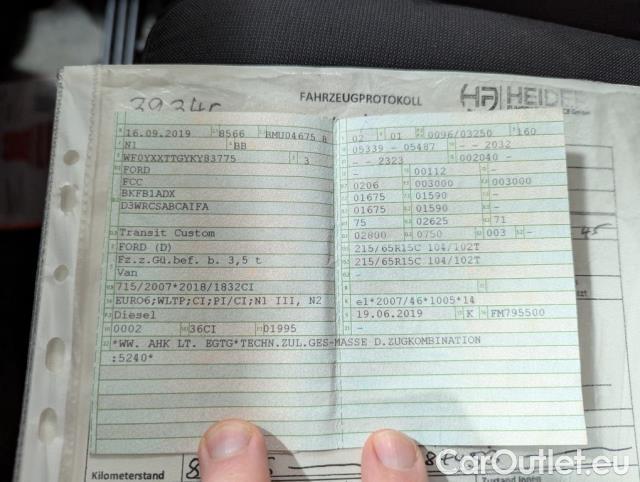 FAHRZEUGPROTOKOLL
16.09.2019 8566 BMU04675 8
N1 BB
WF0YXXTTGYKY83775 3
FORD
FCC
BKFB1ADX
D3WRCSABCAIFA
Transit Custom
FORD (D)
Fz.z.Gü.bef. b. 3,5 t
Van
715/2007*2018/1832CI
EURO6;WLTP;CI;PI/CI;N1 III, N2
Diesel
0002 36CI 01995
*WW. AHK LT. EGTG*TECHN.ZUL.GES-MASSE D.ZUGKOMBINATION
:5240*
02 01 0096/03250 160
05339 - 05487 - - 2032
- - 2323 002040 -
- 00112 -
0206 003000 003000
01675 01590 -
01675 01590 -
75 02625 71
02800 0750 003 -
215/65R15C 104/102T
215/65R15C 104/102T
-
e1*2007/46*1005*14
19.06.2019 K FM795500
-
Kilometerstand
Zustand innen
CarOutlet.eu